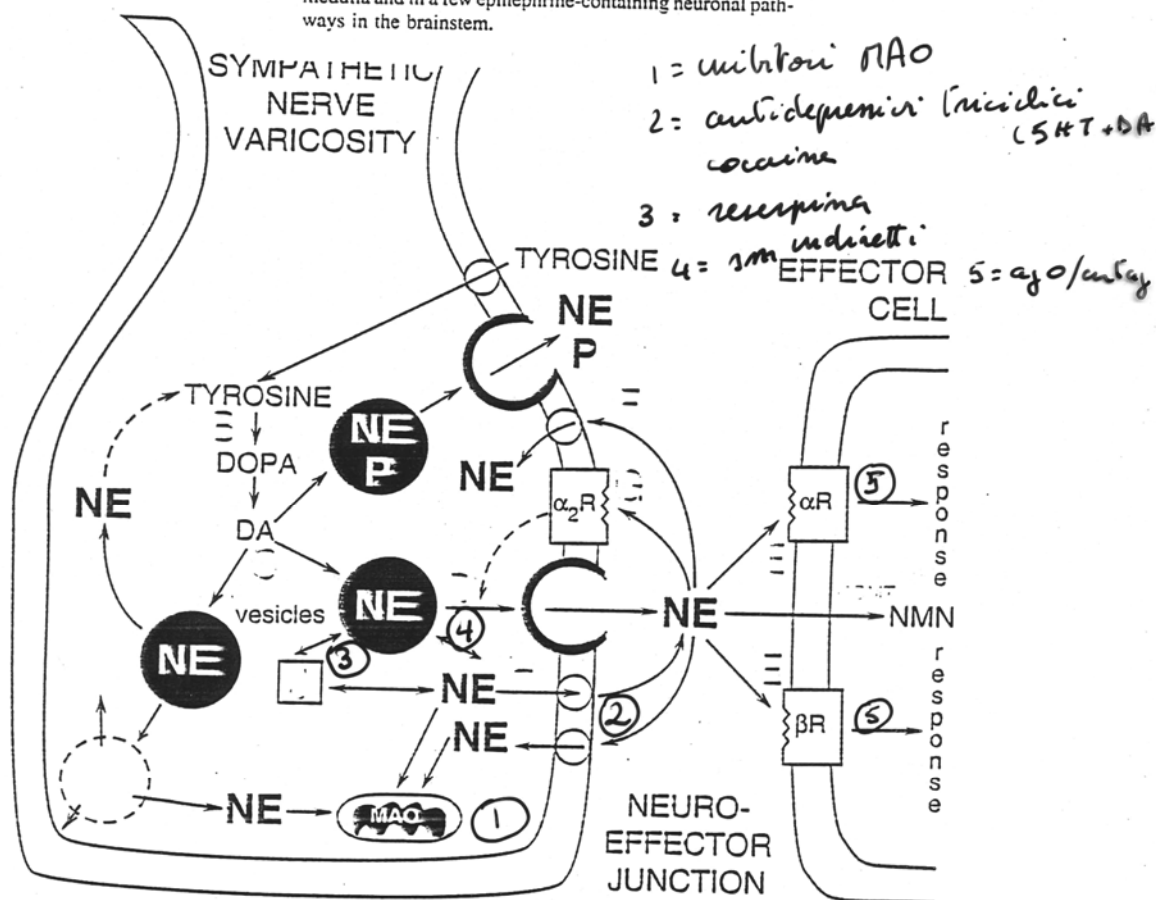 medulla and in a few epinephrine-containing neuronal path-
ways in the brainstem.
SYMPATHETIC
NERVE
VARICOSITY
1 = inibitori MAO
2 = antidepressivi triciclici
(5HT + DA
cocaina
3 = reserpina
4 = sm indiretti
5 = ago/antag
TYROSINE
EFFECTOR
CELL
NE
P
TYROSINE
DOPA
DA
NE
NE
P
NE
α₂R
αR
5
response
vesicles
NE
4
3
NE
NMN
NE
NE
2
NE
βR
5
response
NE
MAO
1
NEURO-
EFFECTOR
JUNCTION